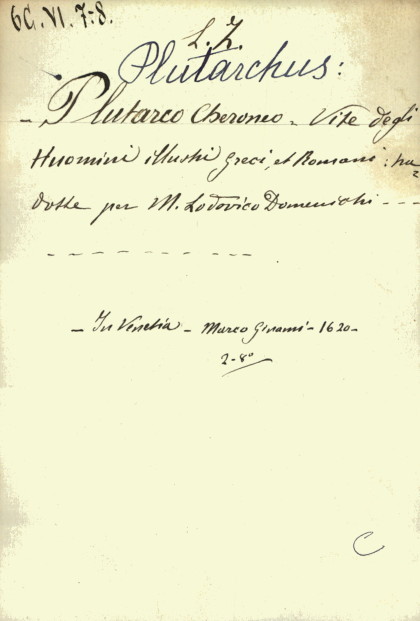 6C. VI. 7-8.
L. Z.
Plutarchus:
- Plutarco Cheroneo - Vite degli
Huomini illustri Greci, et Romani: tra=
dotte per M. Lodovico Domenichi - - -
- - - - - - - - - - -
- In Venetia - Marco Ginami - 1620 -
2-8º
C